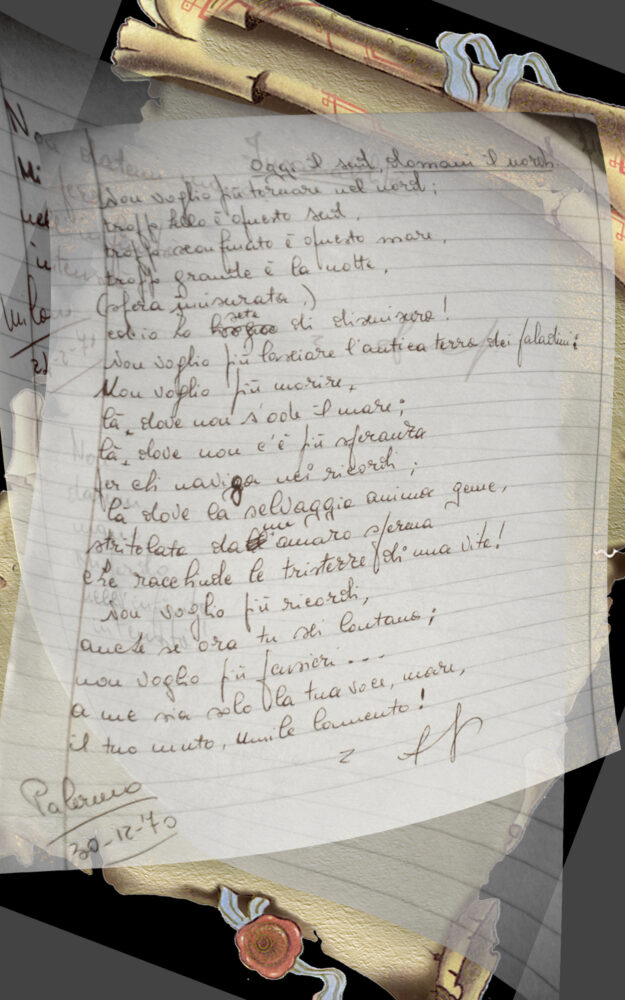 Oggi il sud, domani il nord
Non voglio più tornare nel nord;
troppo bello è questo sud,
troppo sconfinato è questo mare,
troppo grande è la notte,
(sfera smisurata,)
ed io ho sete di dismisura!
Non voglio più lasciare l'antica terra dei paladini;
Non voglio più morire,
là, dove non s'ode il mare;
là, dove non c'è più speranza
per chi naviga nei ricordi;
là dove la selvaggia anima geme,
stritolata da un amaro
che racchiude le tristezze di una vita!
Non voglio più ricordi,
anche se ora tu sei lontano;
non voglio più pensieri...
a me sia solo la tua voce, mare,
il tuo muto, umile lamento!
Palermo
30-12-70